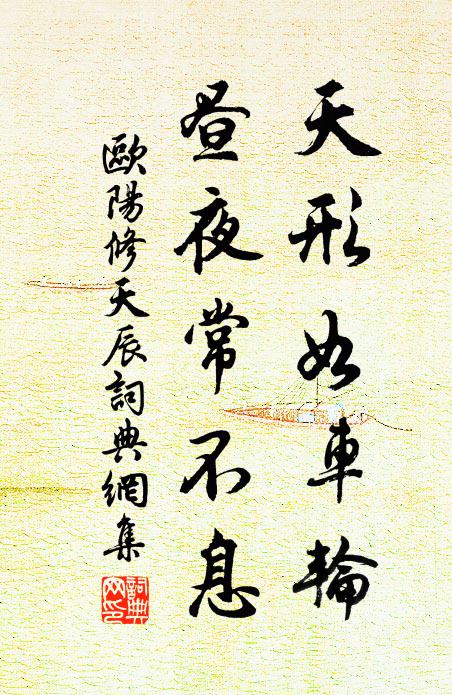 天形如車輪
晝夜常不息
歐陽修天辰詞典網集
詞典
网印